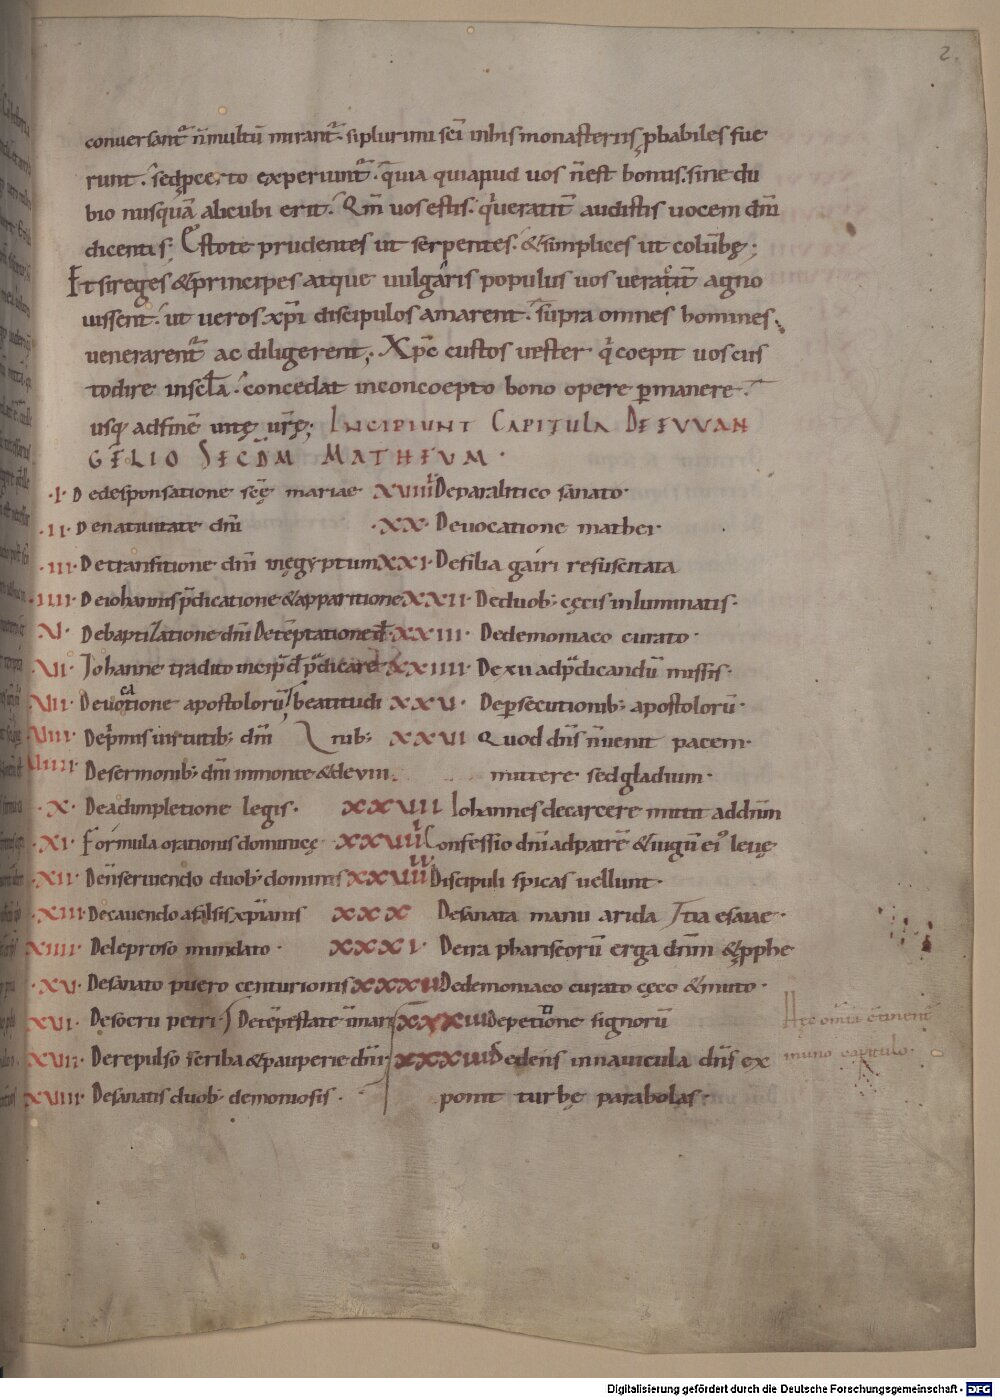 2.
conuersant᷑ n̄ multū mirant᷑. si plurimi sc̄i in his monasteriis ꝓbabiles fue
runt. sed ꝓ certo experiunt᷑. quia qui apud uos n̄ est bonus. sine du
bio nusquā alicubi erit. Qm̄ uos estis. audistis uocem dn̄i
dicentis; Estote prudentes ut serpentes. & simplices ut colūbę;
Et si reges & principes atque uulgaris populus uos agno
uissent. ut ueros xp̄i discipulos amarent. supra omnes homines
uenerarent᷑ ac diligerent; Xp̄c custos uester q' coepit uos cus
todire in scl̄a. concedat in concoepto bono opere ꝑmanere.
usq; ad finē uitę ur̄ę; INCIPIUNT CAPITULA DE EUUAN
GELIO SECDM MATHEUM.
.I. De desponsatione sc̄ę mariae XVIIII De paralitico sanato.
.II. De natiuitate dn̄i .XX. De uocatione mathei.
.III. De transitione dn̄i in ęgyptum XXI. De filia gairi resuscitata
.IIII. De iohannis p̄dicatione & apparitione XXII. De duob; cęcis inluminatis.
.V. De baptizatione dn̄i De tēptatione XXIII. De demoniaco curato.
.VI. Johanne tradito incip̄ p̄dicare XXIIII. De xii ad p̄dicandū missis.
.VII. De uocatione apostolorū beatitudi XXV. De ꝑsecutionib; apostolorū.
.VIII. De p'mis uirtutib; dn̄i nib; XXVI Quod dn̄s n̄ uenit pacem
VIIII. De sermonib; dn̄i in monte & de viii. mittere sed gladium.
.X. De adimpletione legis. XXVII Iohannes de carcere mittit ad dn̄m
.XI. Formula orationis dominicę XXVIII Confessio dn̄i ad patrē & iugū ei' leuę
.XII. De n̄ seruiendo duob; dominis XXVIIII Discipuli spicas uellunt.
.XIII. De cauendo a falsis xp̄ianis XXX De sanata manu arida esaiae.
XIIII. De leproso mundato. XXXI. De ira phariseorū erga dn̄m & ꝓphe
.XV. De sanato puero centurionis XXXII De demoniaco curato cęco & muto.
XVI. De socru petri De tēpestate in mari XXXIII De petitione signorū
XVII. De repulso scriba & pauperie dn̄i XXXIIII De dens in nauicula dn̄s ex
XVIII. De sanatis duob; demoniosis. ponit turbę parabolas.
Hęc omia
in uno capitulo.
Digitalisierung gefördert durch die Deutsche Forschungsgemeinschaft - DFG